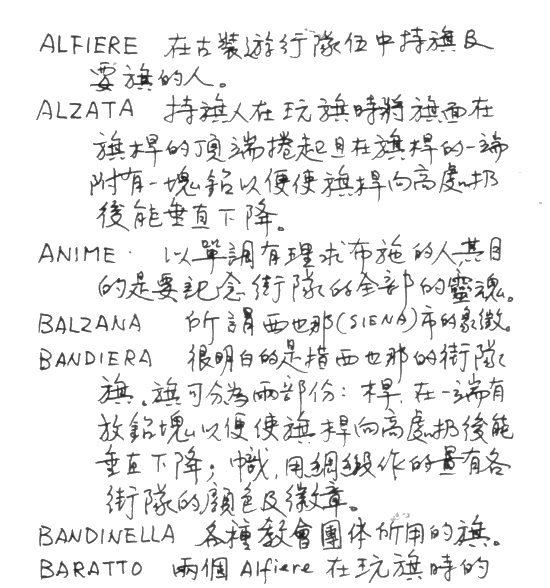 ALFIERE 在古裝遊行隊伍中持旗及
耍旗的人。
ALZATA 持旗人在玩旗時將旗面在
旗桿的頂端捲起且在旗桿的一端
附有一塊鉛以便使旗桿向高處扔
後能垂直下降。
ANIME 以單調有理求布施的人其目
的是要記念街隊的全部的靈魂。
BALZANA 所謂西也那(SIENA)市的象徵。
BANDIERA 很明白的是指西也那的街隊
旗。旗可分為兩部份：桿,在一端有
放鉛塊以便使旗桿向高處扔後能
垂直下降；幟,用綢緞作的並有各
街隊的顏色及徽章。
BANDINELLA 各種教會團体所用的旗。
BARATTO 兩個Alfiere在玩旗時的